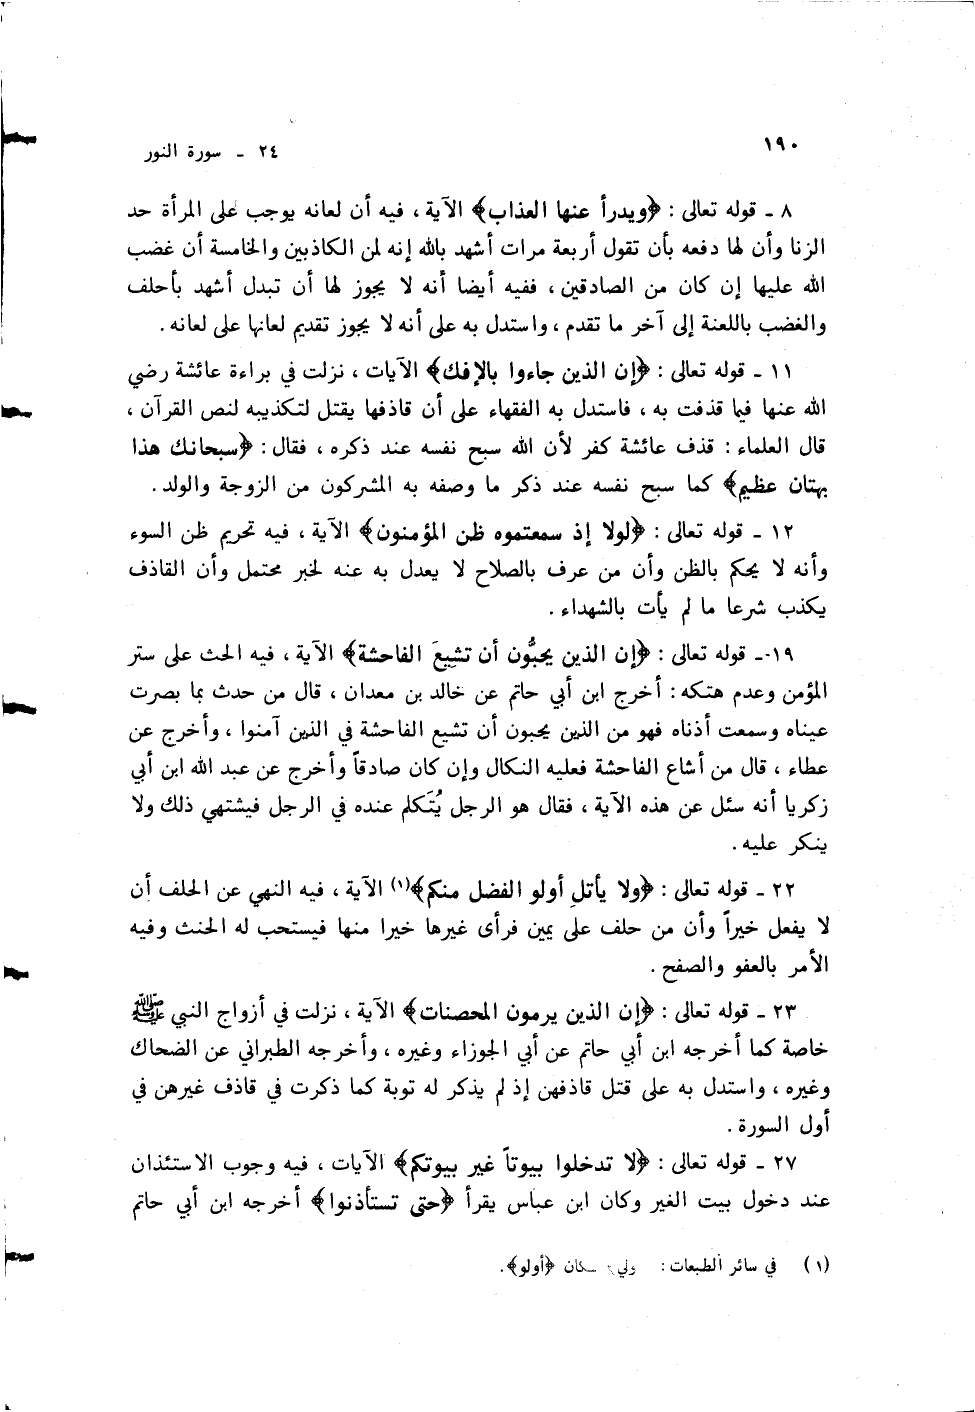 ١٩٠
٢٤ - سورة النور
٨ - قوله تعالى : ﴿ويدرأ عنها العذاب﴾ الآية ، فيه أن لعانه يوجب على المرأة حد
الزنا وأن لها دفعه بأن تقول أربعة مرات أشهد بالله إنه لمن الكاذبين والخامسة أن غضب
الله عليها إن كان من الصادقين ، ففيه أيضا أنه لا يجوز لها أن تبدل أشهد بأحلف
والغضب باللعنة إلى آخر ما تقدم ، واستدل به على أنه لا يجوز تقديم لعانها على لعانه .
١١ - قوله تعالى : ﴿إن الذين جاءوا بالإفك﴾ الآيات ، نزلت في براءة عائشة رضي
الله عنها فيما قذفت به ، فاستدل به الفقهاء على أن قاذفها يقتل لتكذيبه لنص القرآن ،
قال العلماء : قذف عائشة كفر لأن الله سبح نفسه عند ذكره ، فقال : ﴿سبحانك هذا
بهتان عظيم﴾ كما سبح نفسه عند ذكر ما وصفه به المشركون من الزوجة والولد .
١٢ - قوله تعالى : ﴿لولا إذ سمعتموه ظن المؤمنون﴾ الآية ، فيه تحريم ظن السوء
وأنه لا يحكم بالظن وأن من عرف بالصلاح لا يعدل به عنه لخبر محتمل وأن القاذف
يكذب شرعا ما لم يأت بالشهداء .
١٩ - قوله تعالى : ﴿إن الذين يحبُّون أن تشيعَ الفاحشة﴾ الآية ، فيه الحث على ستر
المؤمن وعدم هتكه : أخرج ابن أبي حاتم عن خالد بن معدان ، قال من حدث بما بصرت
عيناه وسمعت أذناه فهو من الذين يحبون أن تشيع الفاحشة في الذين آمنوا ، وأخرج عن
عطاء ، قال من أشاع الفاحشة فعليه النكال وإن كان صادقاً وأخرج عن عبد الله ابن أبي
زكريا أنه سئل عن هذه الآية ، فقال هو الرجل يُتَكلم عنده في الرجل فيشتهي ذلك ولا
ينكر عليه .
٢٢ - قوله تعالى : ﴿ولا يأتلِ أولو الفضل منكم﴾(١) الآية ، فيه النهي عن الحلف أن
لا يفعل خيراً وأن من حلف على يمين فرأى غيرها خيرا منها فيستحب له الحنث وفيه
الأمر بالعفو والصفح .
٢٣ - قوله تعالى : ﴿إن الذين يرمون المحصنات﴾ الآية ، نزلت في أزواج النبي ﷺ
خاصة كما أخرجه ابن أبي حاتم عن أبي الجوزاء وغيره ، وأخرجه الطبراني عن الضحاك
وغيره ، واستدل به على قتل قاذفهن إذ لم يذكر له توبة كما ذكرت في قاذف غيرهن في
أول السورة .
٢٧ - قوله تعالى : ﴿لا تدخلوا بيوتاً غير بيوتكم﴾ الآيات ، فيه وجوب الاستئذان
عند دخول بيت الغير وكان ابن عباس يقرأ ﴿حتى تستأذنوا﴾ أخرجه ابن أبي حاتم
(١) في سائر الطبعات : ﴿أولو﴾ .